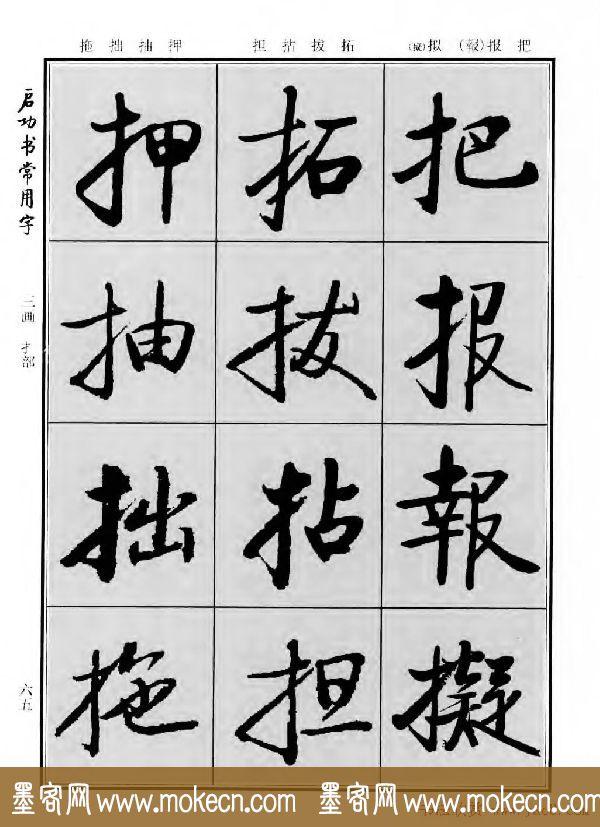 把 报(報) 拟(擬)
拓 拔 拈 担
押 抽 拙 拖
把
报
報
擬
拓
拔
拈
担
押
抽
拙
拖
启功书常用字
三画 扌部
六五
墨客网 www.mokecn.com 墨客网 www.mokecn.com